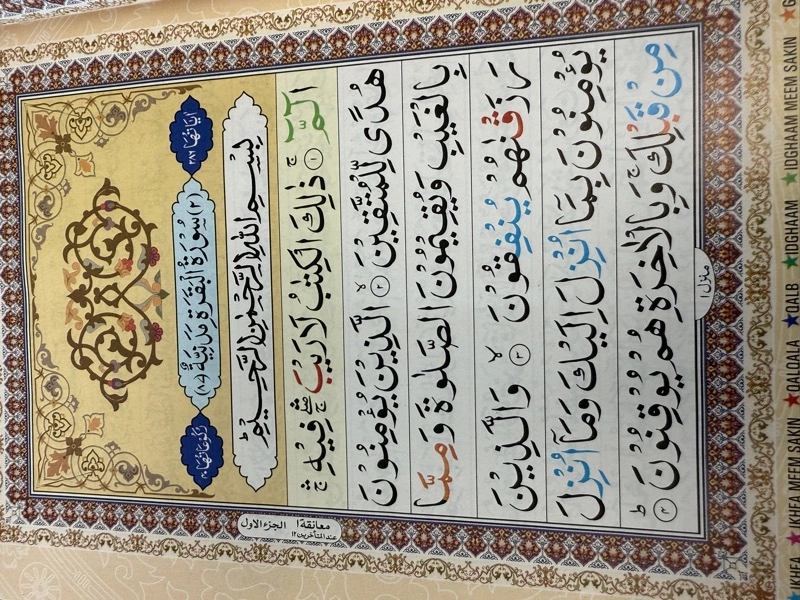 اٰيَاتُهَا ٢٨٦
(٢) سُوۡرَةُ الۡبَقَرَةِ مَدَنِيَّةٌ (٨٧)
رُكُوۡعَاتُهَا ٤٠
بِسۡمِ اللّٰهِ الرَّحۡمٰنِ الرَّحِيۡمِ
الٓمّٓ ۚ‏ ﴿۱﴾ ذٰلِكَ الۡكِتٰبُ لَا رَيۡبَ ۛۚ فِيۡهِ ۛۚ
هُدًى لِّلۡمُتَّقِيۡنَ ۙ‏ ﴿۲﴾ الَّذِيۡنَ يُؤۡمِنُوۡنَ
بِالۡغَيۡبِ وَ يُقِيۡمُوۡنَ الصَّلٰوةَ وَ مِمَّا
رَزَقۡنٰهُمۡ يُنۡفِقُوۡنَ ۙ‏ ﴿۳﴾ وَ الَّذِيۡنَ
يُؤۡمِنُوۡنَ بِمَاۤ اُنۡزِلَ اِلَيۡكَ وَ مَاۤ اُنۡزِلَ
مِنۡ قَبۡلِكَ ۚ وَ بِالۡاٰخِرَةِ هُمۡ يُوۡقِنُوۡنَ ؕ‏ ﴿۴﴾
منزل ١
معانقة ١ الجزء الاول
عند المتأخرين ١٢
IKHFA ★ IKHFA MEEM SAKIN ★ QALQALA ★ QALB ★ IDGHAAM ★ IDGHAAM MEEM SAKIN ★